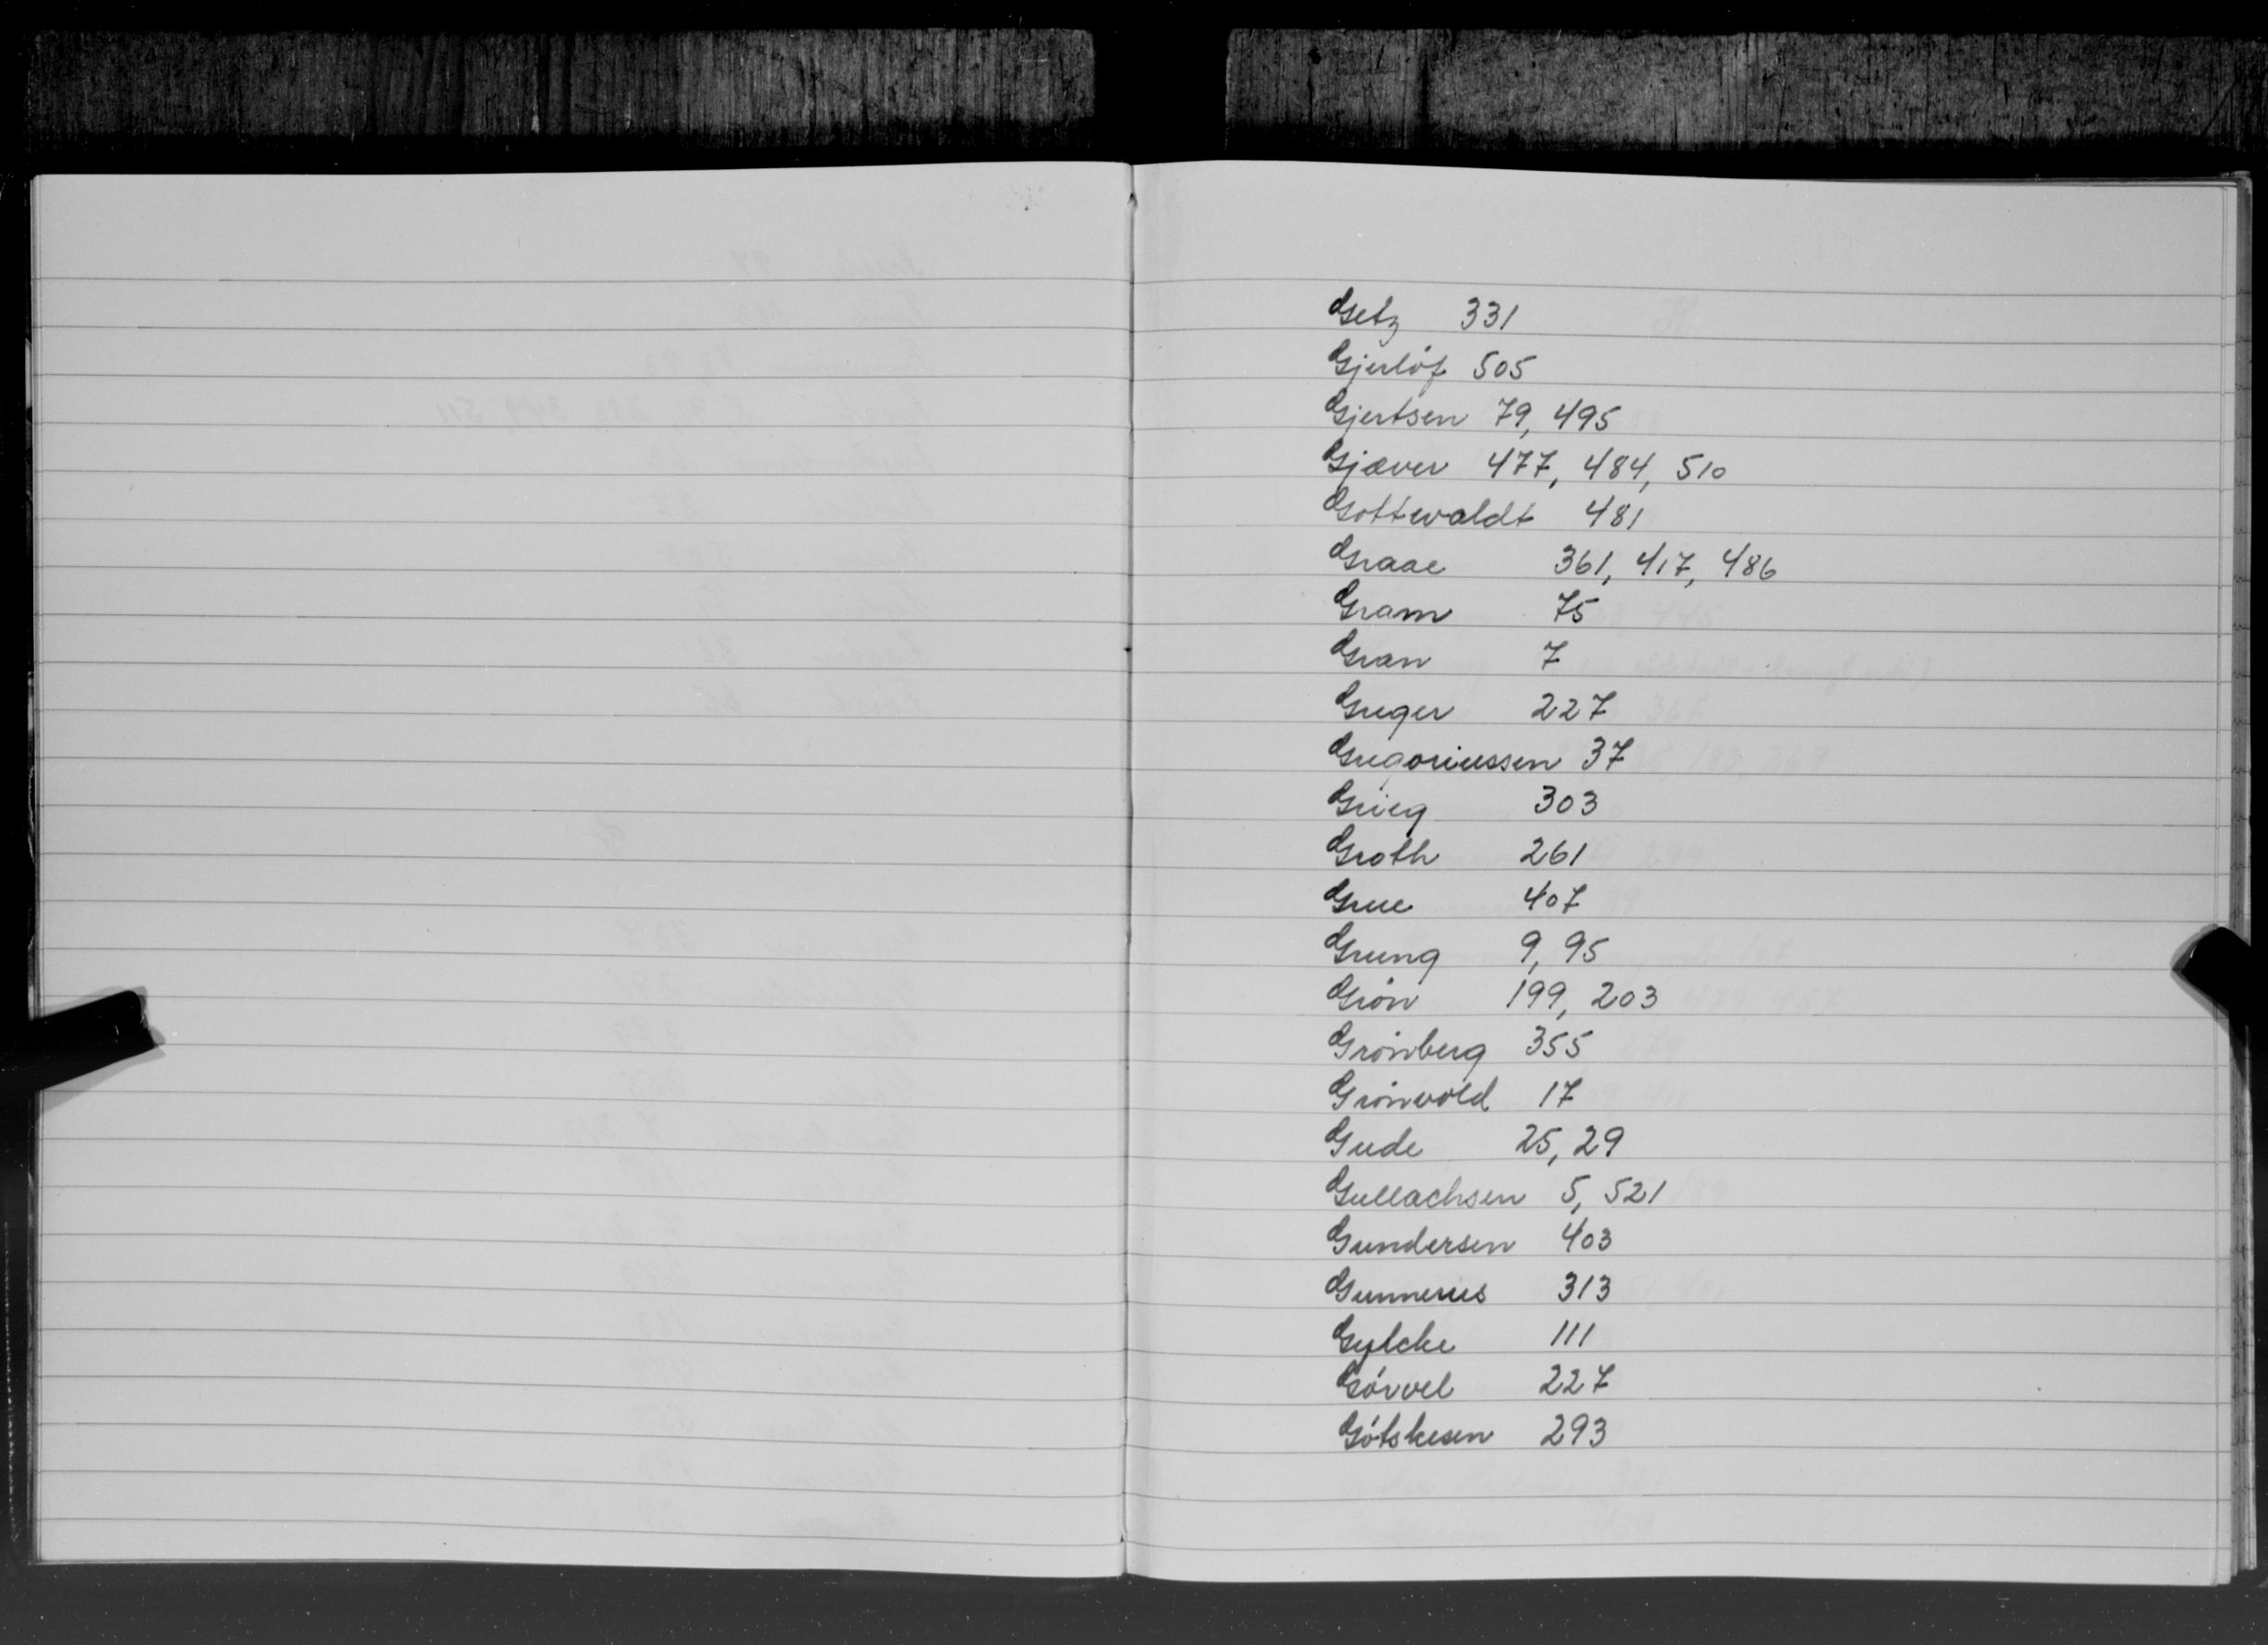 Getz 331
Gjerløf 505
Gjertsen 79, 495
Gjæver 477, 484, 510
Gottwaldt 481
Graae 361, 417, 486
Gram 75
Gran 7
Greger 227
Gregoriussen 37
Grieg 303
Groth 261
Grue 407
Grung 9, 95
Grøn 199, 203
Grønberg 355
Grønvold 17
Gude 25, 29
Gullachsen 5, 521
Gundersen 403
Gunnerus 313
Gylche 111
Gørvel 227
Gøtskesen 293